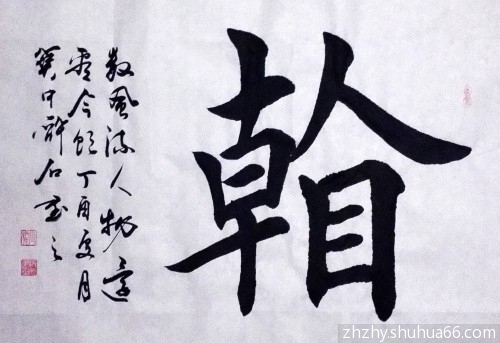 朝
数風流人物還
看今朝丁酉夏月
石書之
zhzhy.shuhua66.com